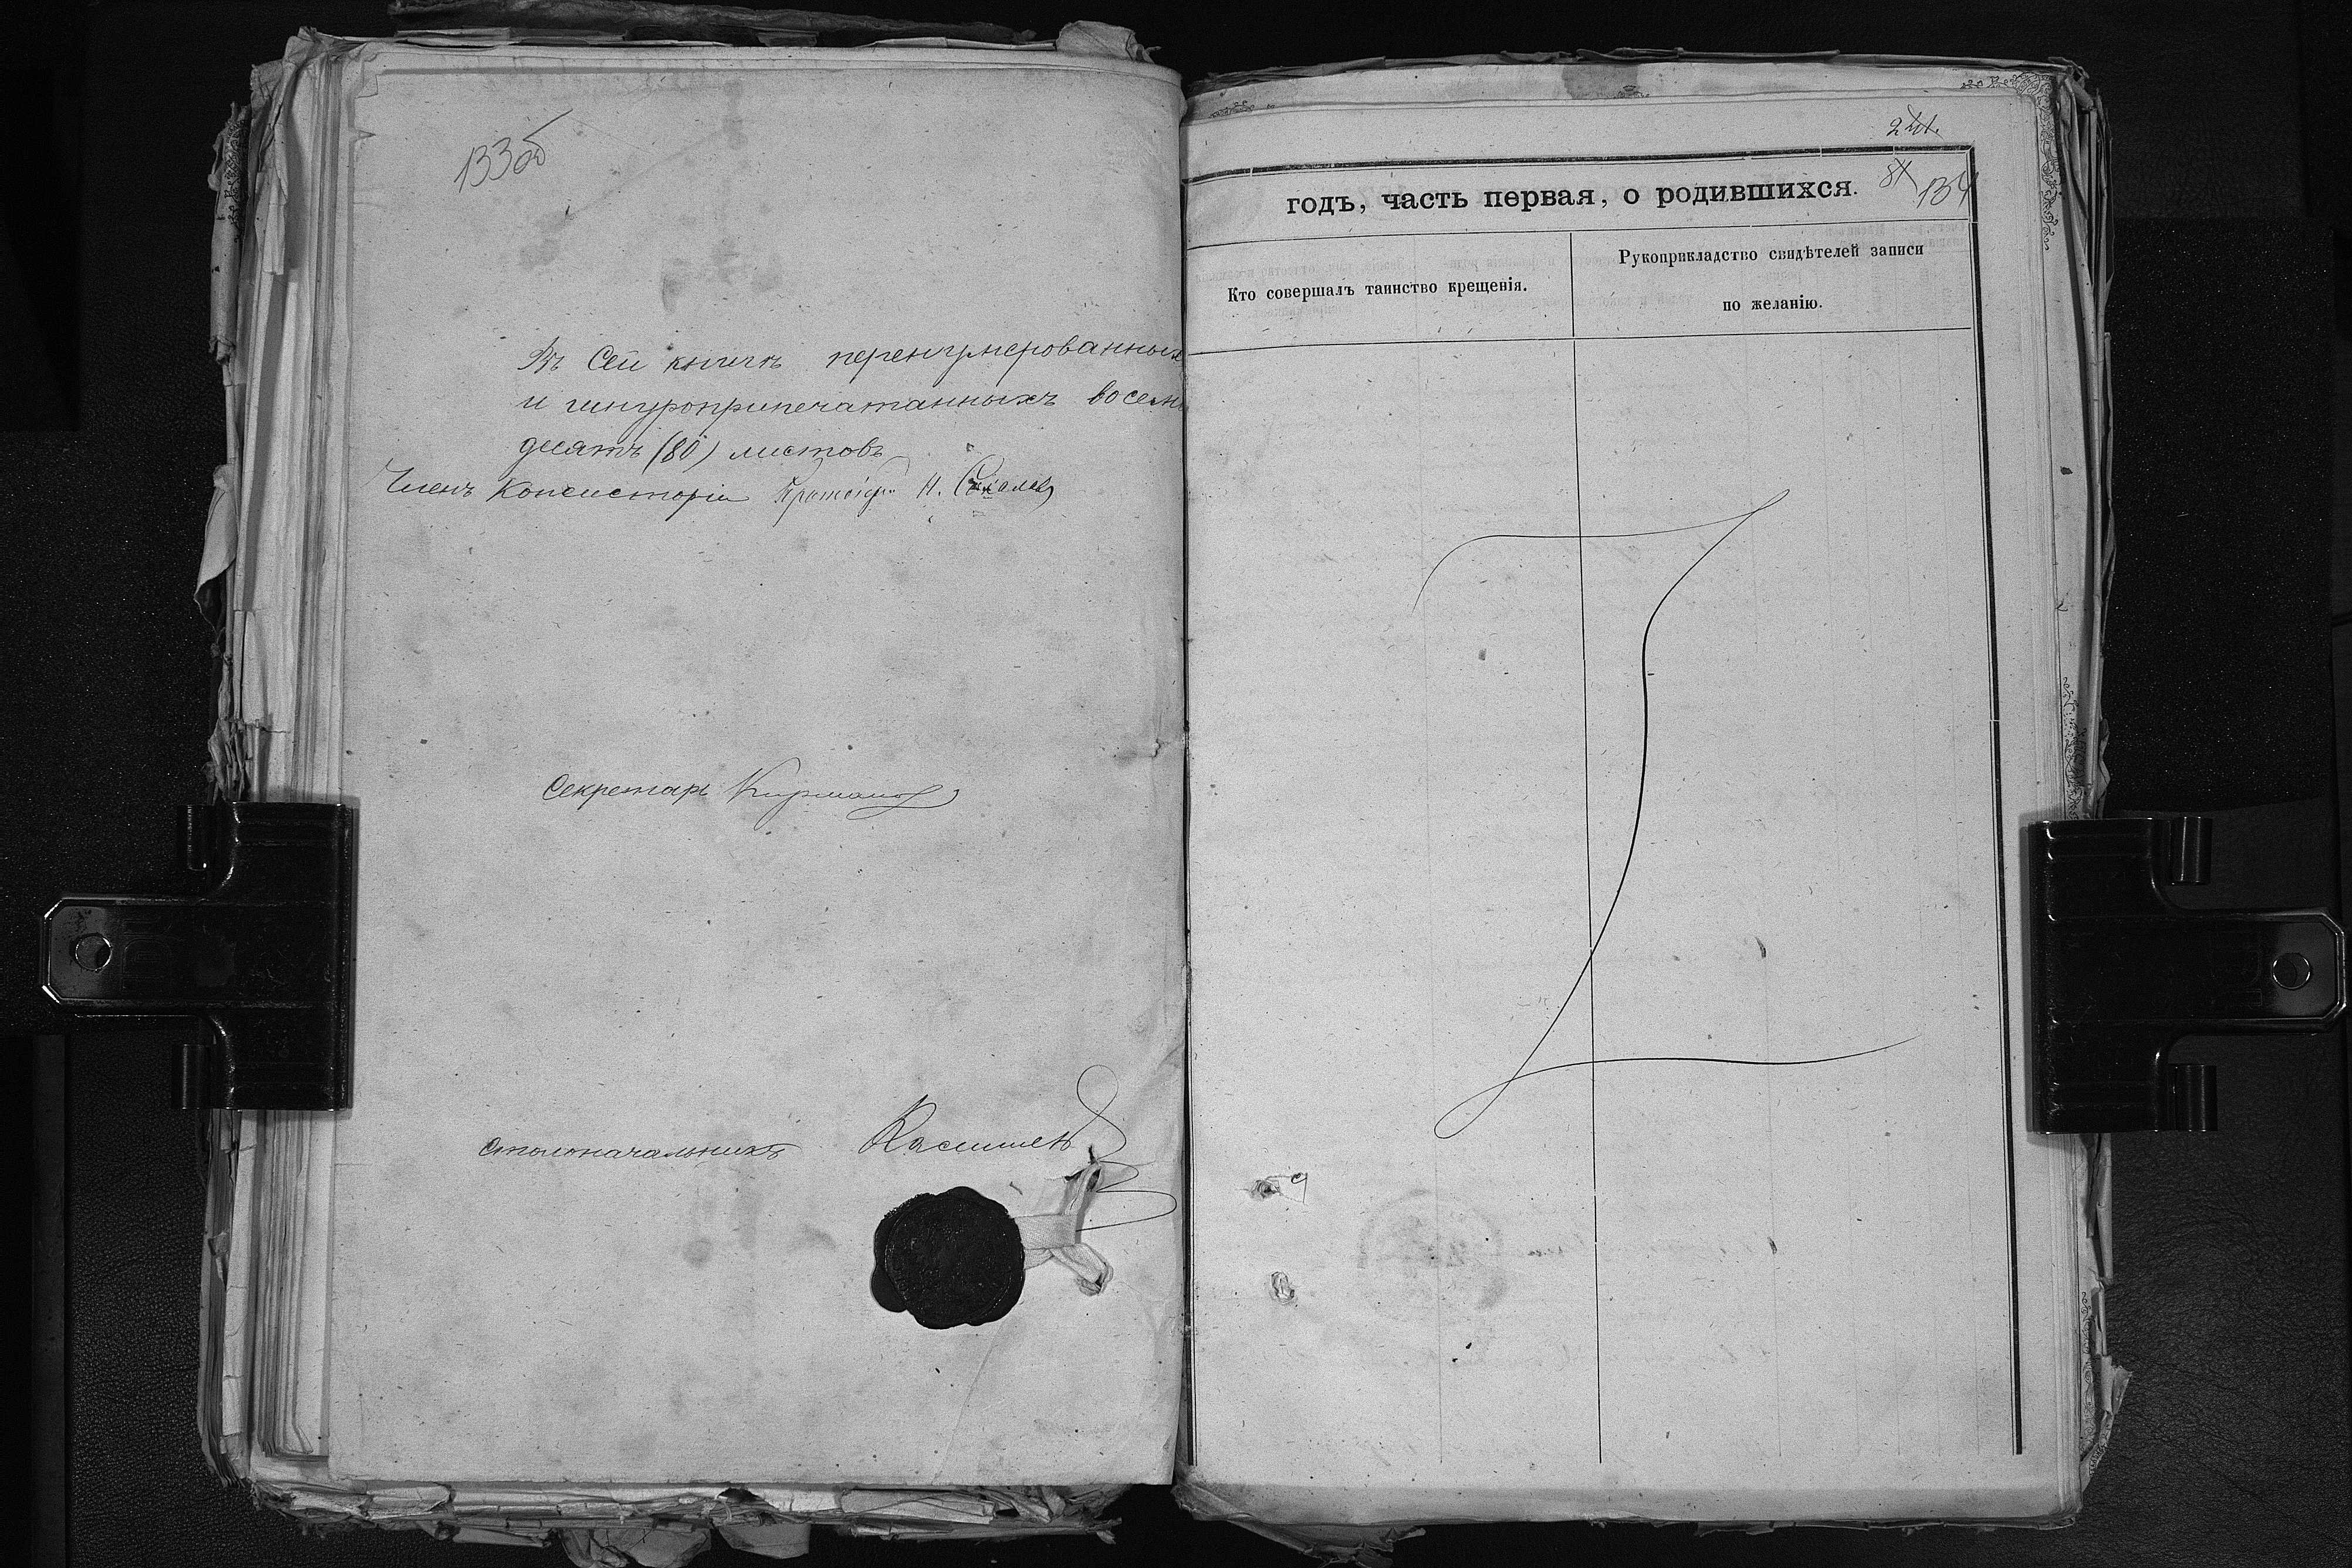 133об
Въ Сей книгѣ перенумерованныхъ
и шнуроприпечатанныхъ восемь
десятъ (80) листовъ
Членъ Консисторіи Протоіер. Н.
Секретарь
Столоначальникъ
134
годъ, часть первая, о родившихся.
Кто совершалъ таинство крещенія.
Рукоприкладство свидѣтелей записи
по желанію.